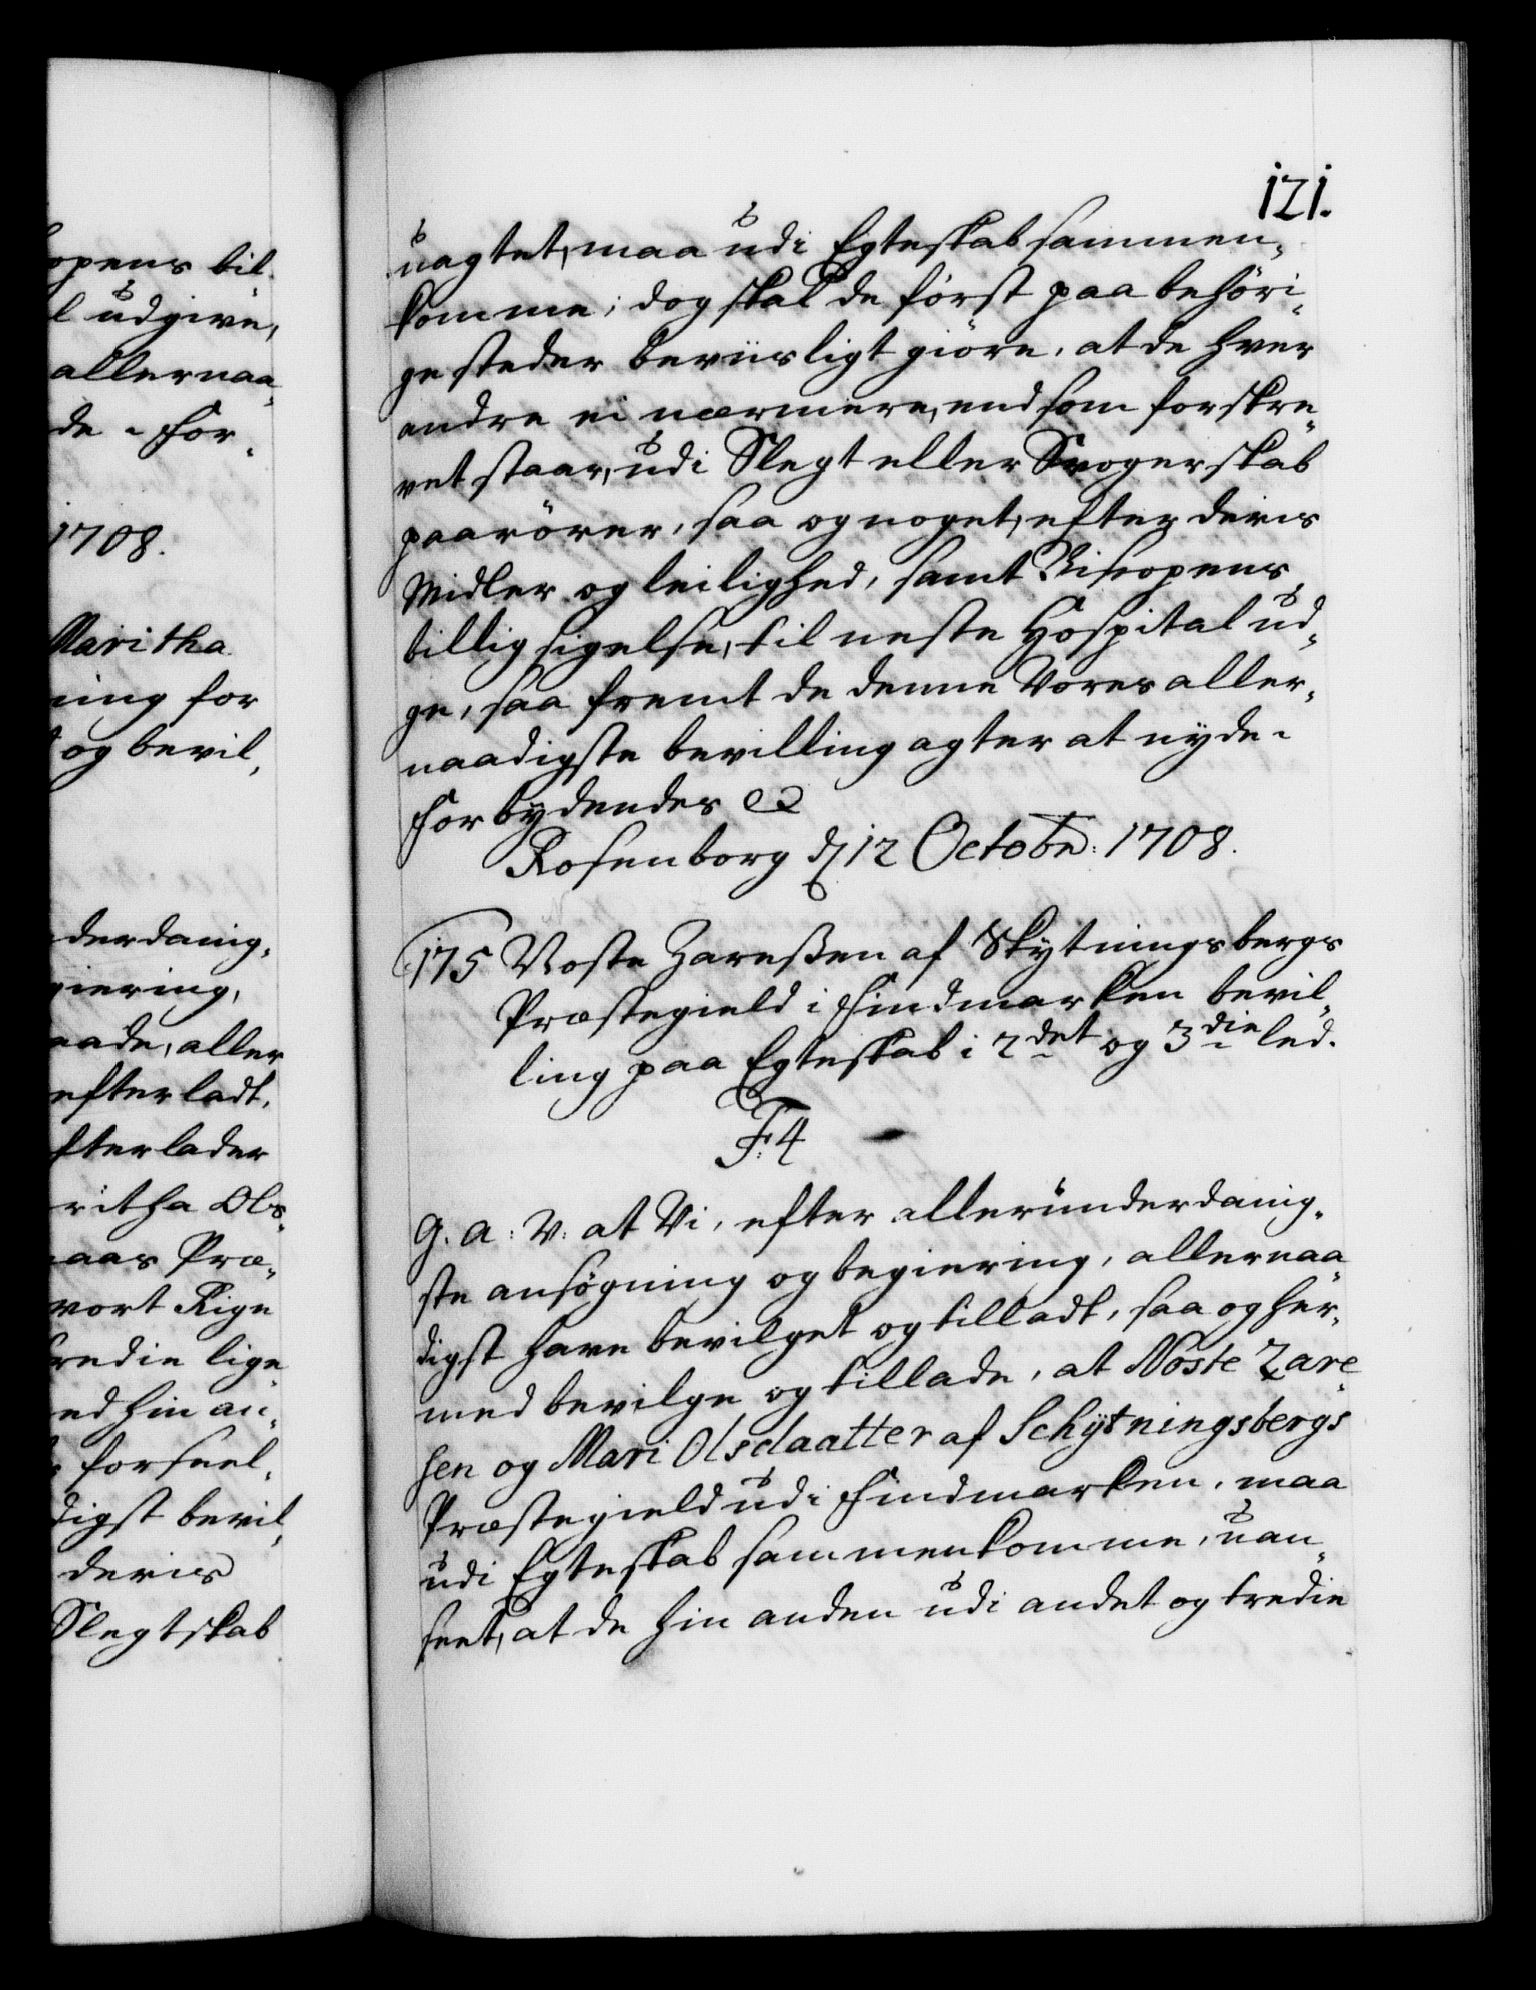 opens bil-
l udgive,
allernaa-
de. For-
1708.
Maritha
ning for
og bevil-
derdanig-
giering,
aade, aller
efterladt,
fterlader
ritha Ols-
aas Præ-
vort Rige
tredie lige
ed hin an-
forseel-
digst bevil-
deris
Slegtskab
121.
uagtet, maa udi Egteskab sammen-
komme; dog skal de først paa behöri-
ge steder beviisligt giöre, at de hver
andre ei nærmere, end som forskre-
vet staar, udi Slegt eller Svogerskab
paarörer, saa og noget, efter deris
Midler og leilighed, samt Biscopens
billigsigelse, til neste Hospital ud-
ge, saa fremt de denne Vores aller-
naadigste bevilling agter at nyde.
Forbydendes &
Rosenborg d 12 Octobr: 1708.
175 Noste Zareßen af Skytningsbergs
Præstegield i Findmarken bevil-
ling paa Egteskab i 2det og 3die led.
F:4
G. A: V: at Vi, efter allerunderdanig-
ste ansøgning og begiering, allernaa-
digst have bevilget og tilladt, saa og her-
med bevilge og tillade, at Noste Zare-
sen og Mari Olsdaatter af Schÿtningsbergs
Præstegield udi Findmarken, maa
udi Egteskab sammenkomme, uan-
seet, at de hin anden udi andet og tredie